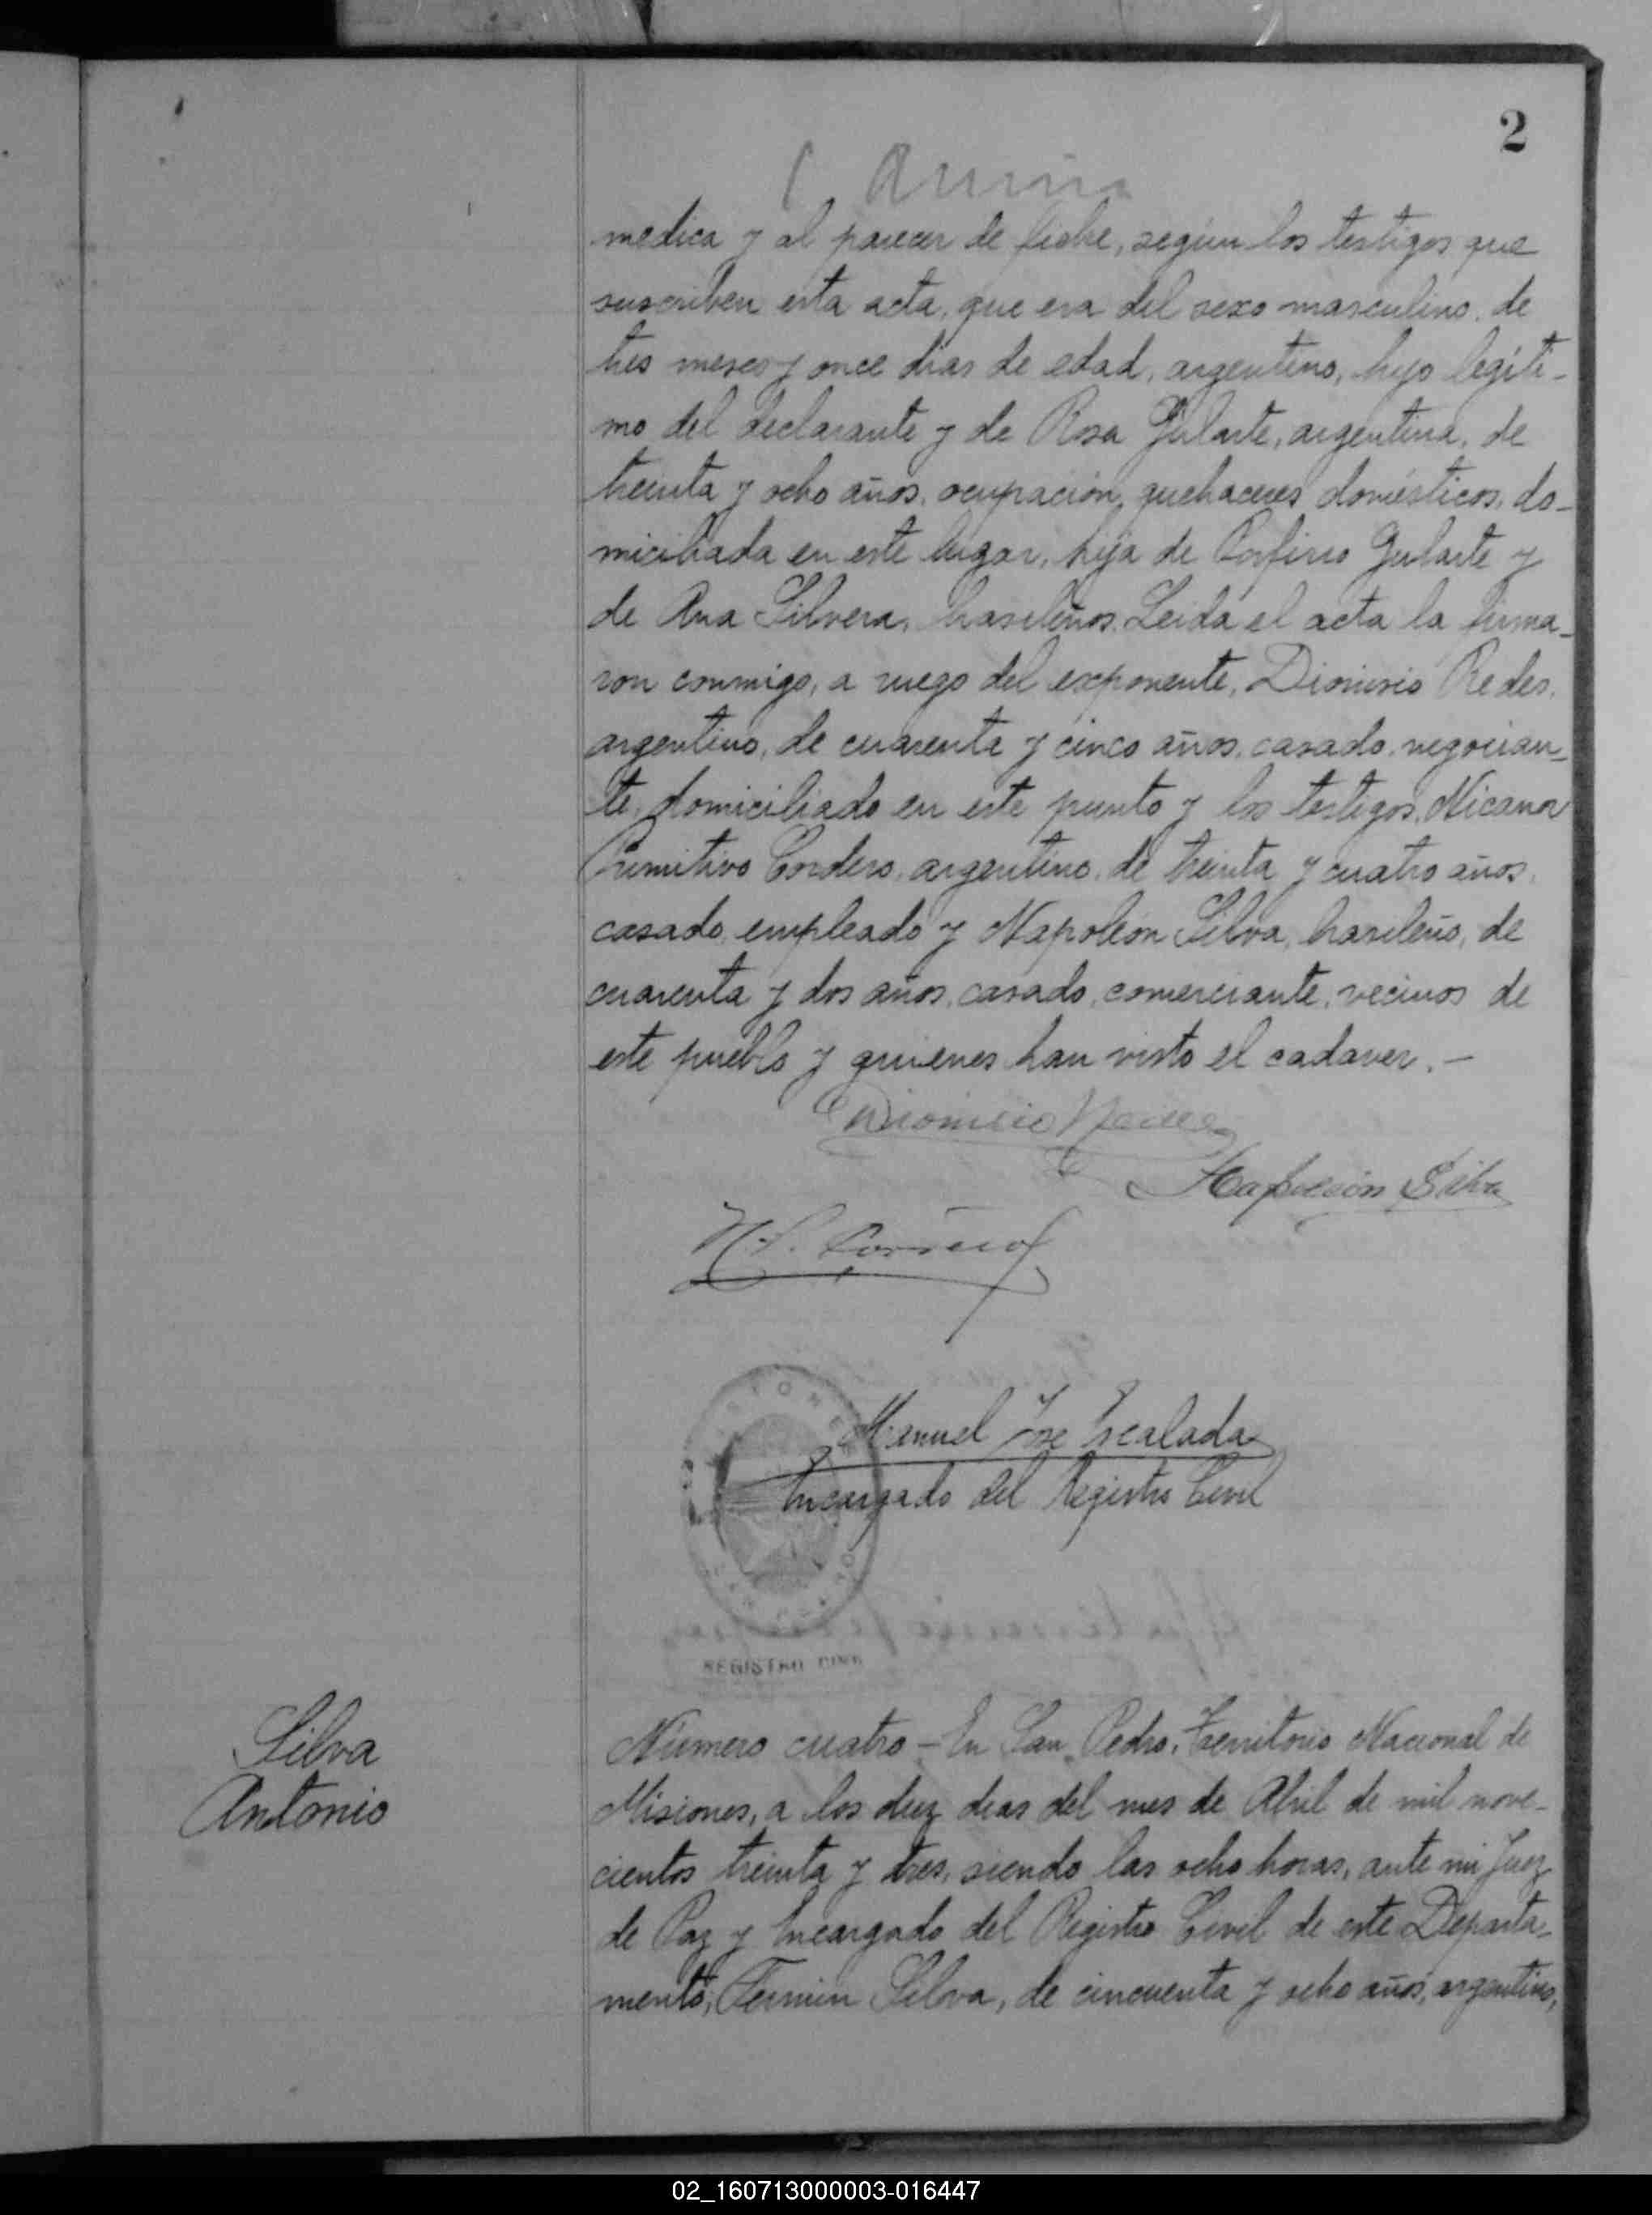 2
medica y al parecer de fiebre, según los testigos que
suscriben esta acta, que era del sexo masculino, de
tres meses y once dias de edad, argentino, hijo legíti-
mo del declarante y de Rosa Gularte, argentina, de
treinta y ocho años, ocupación, quehaceres domésticos, do-
miciliada en este lugar, hija de Porfirio Gularte y
de Ana Silvera, brasileños. Leida el acta la firma-
ron conmigo, a ruego del exponente, Dionisio Redes,
argentino, de cuarenta y cinco años, casado, negocian-
te, domiciliado en este punto y los testigos, Nicanor
Primitivo Cordero, argentino, de treinta y cuatro años,
casado, empleado y Napoleón Silva, brasileño, de
cuarenta y dos años, casado, comerciante, vecinos de
este pueblo y quienes han visto el cadaver. -
Dionicio
Napoleón Silva
N. P. Cordero
Manuel José Escalada
Encargado del Registro Civil
REGISTRO CIVIL
Silva
Antonio
Número cuatro - En San Pedro, Territorio Nacional de
Misiones, a los diez dias del mes de Abril de mil nove-
cientos treinta y tres, siendo las ocho horas, ante mi Juez
de Paz y Encargado del Registro Civil de este Departa-
mento, Fermin Silva, de cincuenta y ocho años, argentino,
02_160713000003-016447